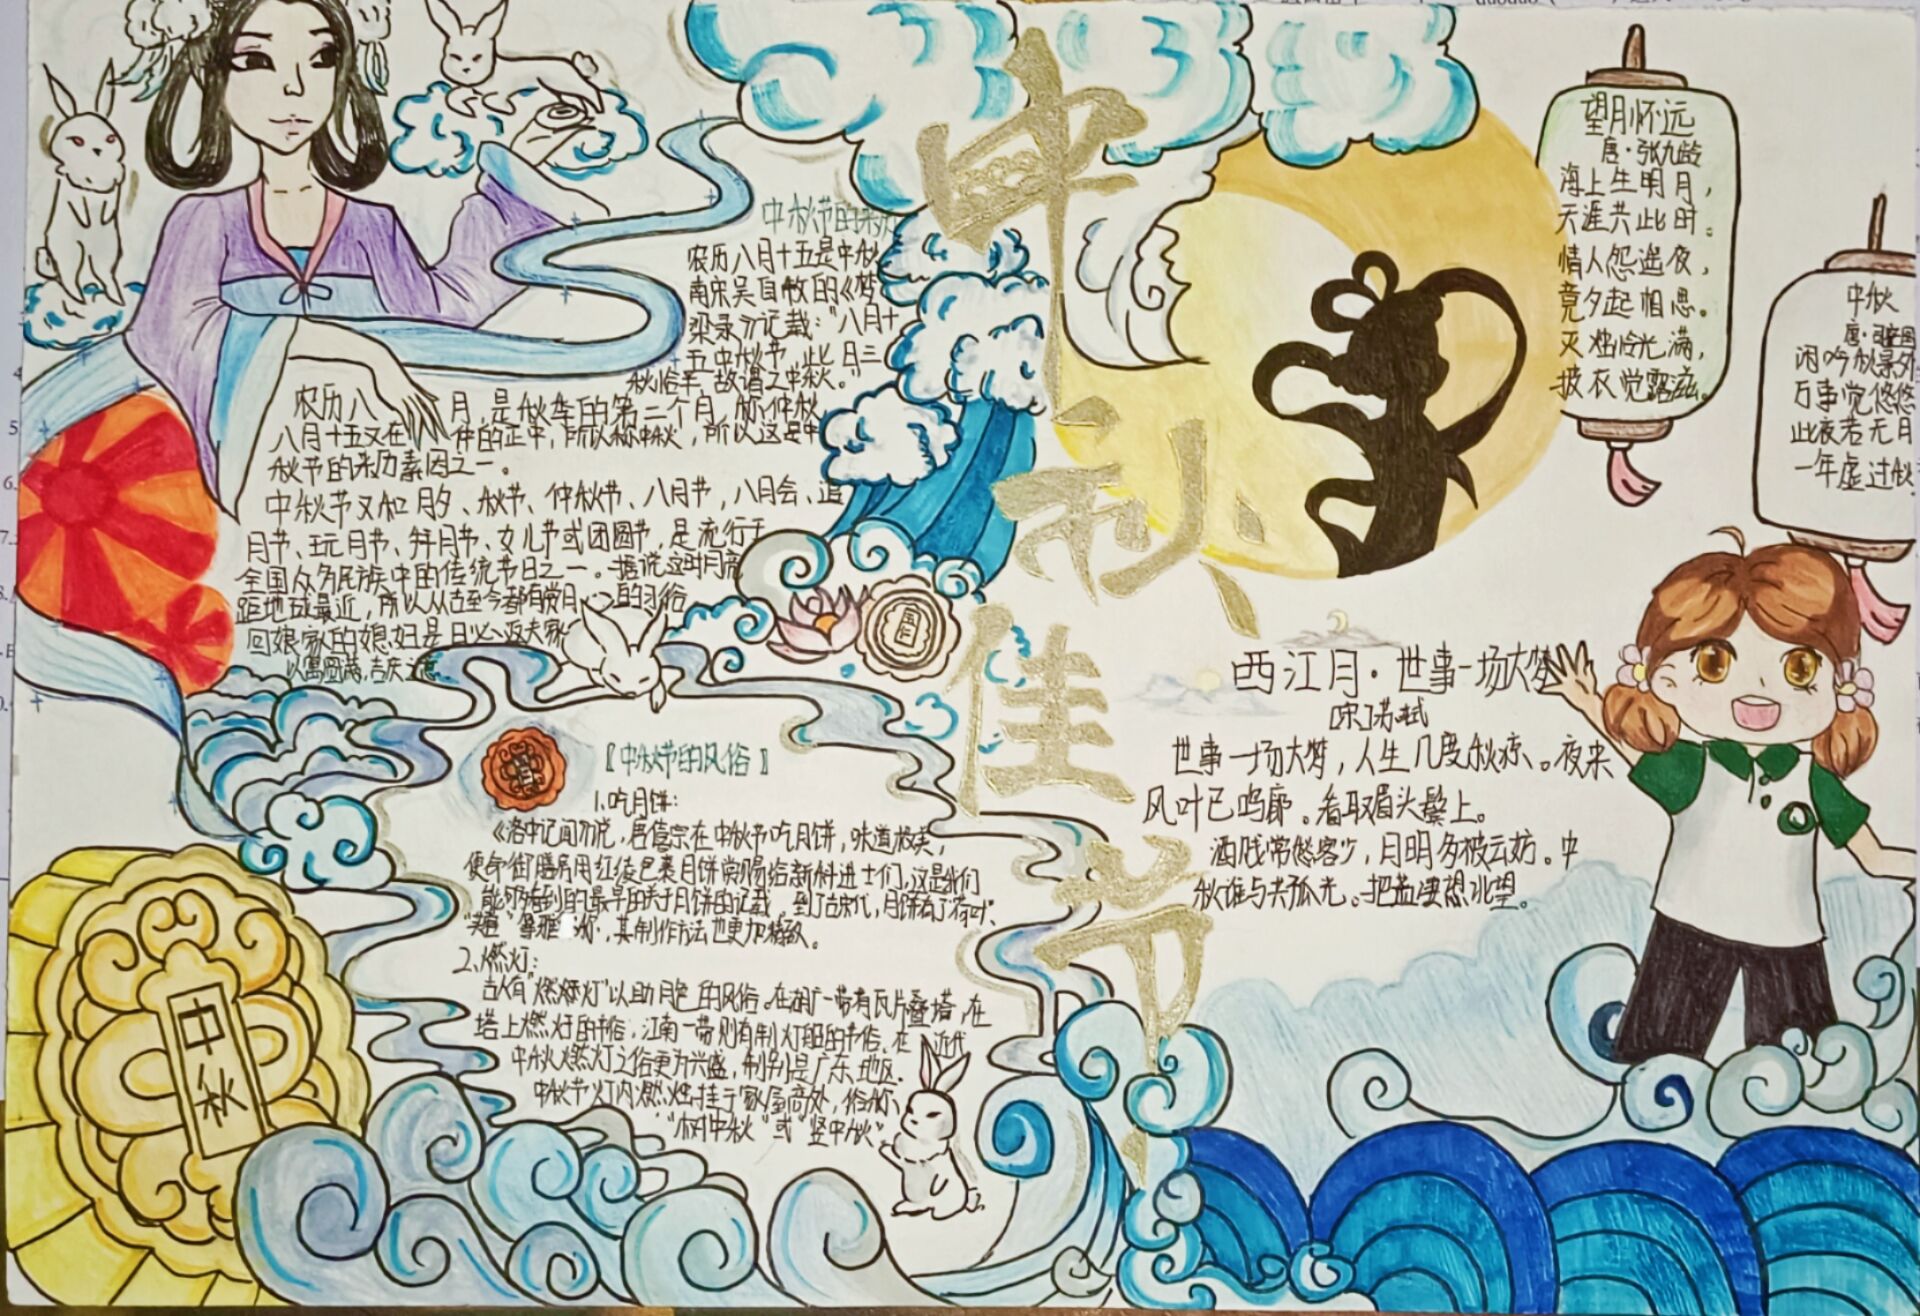 中秋佳节
中秋节的来历
农历八月十五是中秋
南宋吴自牧的《梦
梁录》记载：“八月十
五中秋节，此日三
秋恰半，故谓之中秋。”
农历八 月，是秋季的第二个月，称仲秋
八月十五又在 仲的正中，所以称中秋，所以这是中
秋节的来历素因之一。
中秋节又和月夕、秋节、仲秋节、八月节，八月会、追
月节、玩月节、拜月节、女儿节或团圆节，是流行于
全国众多民族中的传统节日之一。据说这时月
距地球最近，所以从古至今都有赏月 的习俗
回娘家的媳妇是日必返夫家
以寓圆满，吉庆之意。
【中秋节的风俗】
1.吃月饼：
《洛中记闻》说，唐僖宗在中秋节吃月饼，味道极美，
便命御膳房用红绫包裹月饼赏赐给新科进士们，这是我们
能够看到的最早的关于月饼的记载。到了宋代，月饼有了“荷叶”、
其制作方法也更加精致。
2.燃灯：
古人有“燃灯”以助月色的风俗。在湖广一带有瓦片叠塔，在
塔上燃灯的节俗，江南一带则有制灯船的节俗，在 近代
中秋燃灯之俗更为兴盛，制别是广东地区，
中秋节灯内燃烛挂于家屋高处，俗称
“树中秋”或“竖中秋”
中秋
望月怀远
唐·张九龄
海上生明月，
天涯共此时。
情人怨遥夜，
竟夕起相思。
灭烛怜光满，
披衣觉露滋。
中秋
唐·司空图
闲吟秋景外
万事觉悠悠
此夜若无月
一年虚过秋
西江月·世事一场大梦
[宋]苏轼
世事一场大梦，人生几度秋凉。夜来
风叶已鸣廊。看取眉头鬓上。
酒贱常愁客少，月明多被云妨。中
秋谁与共孤光。把盏凄然北望。